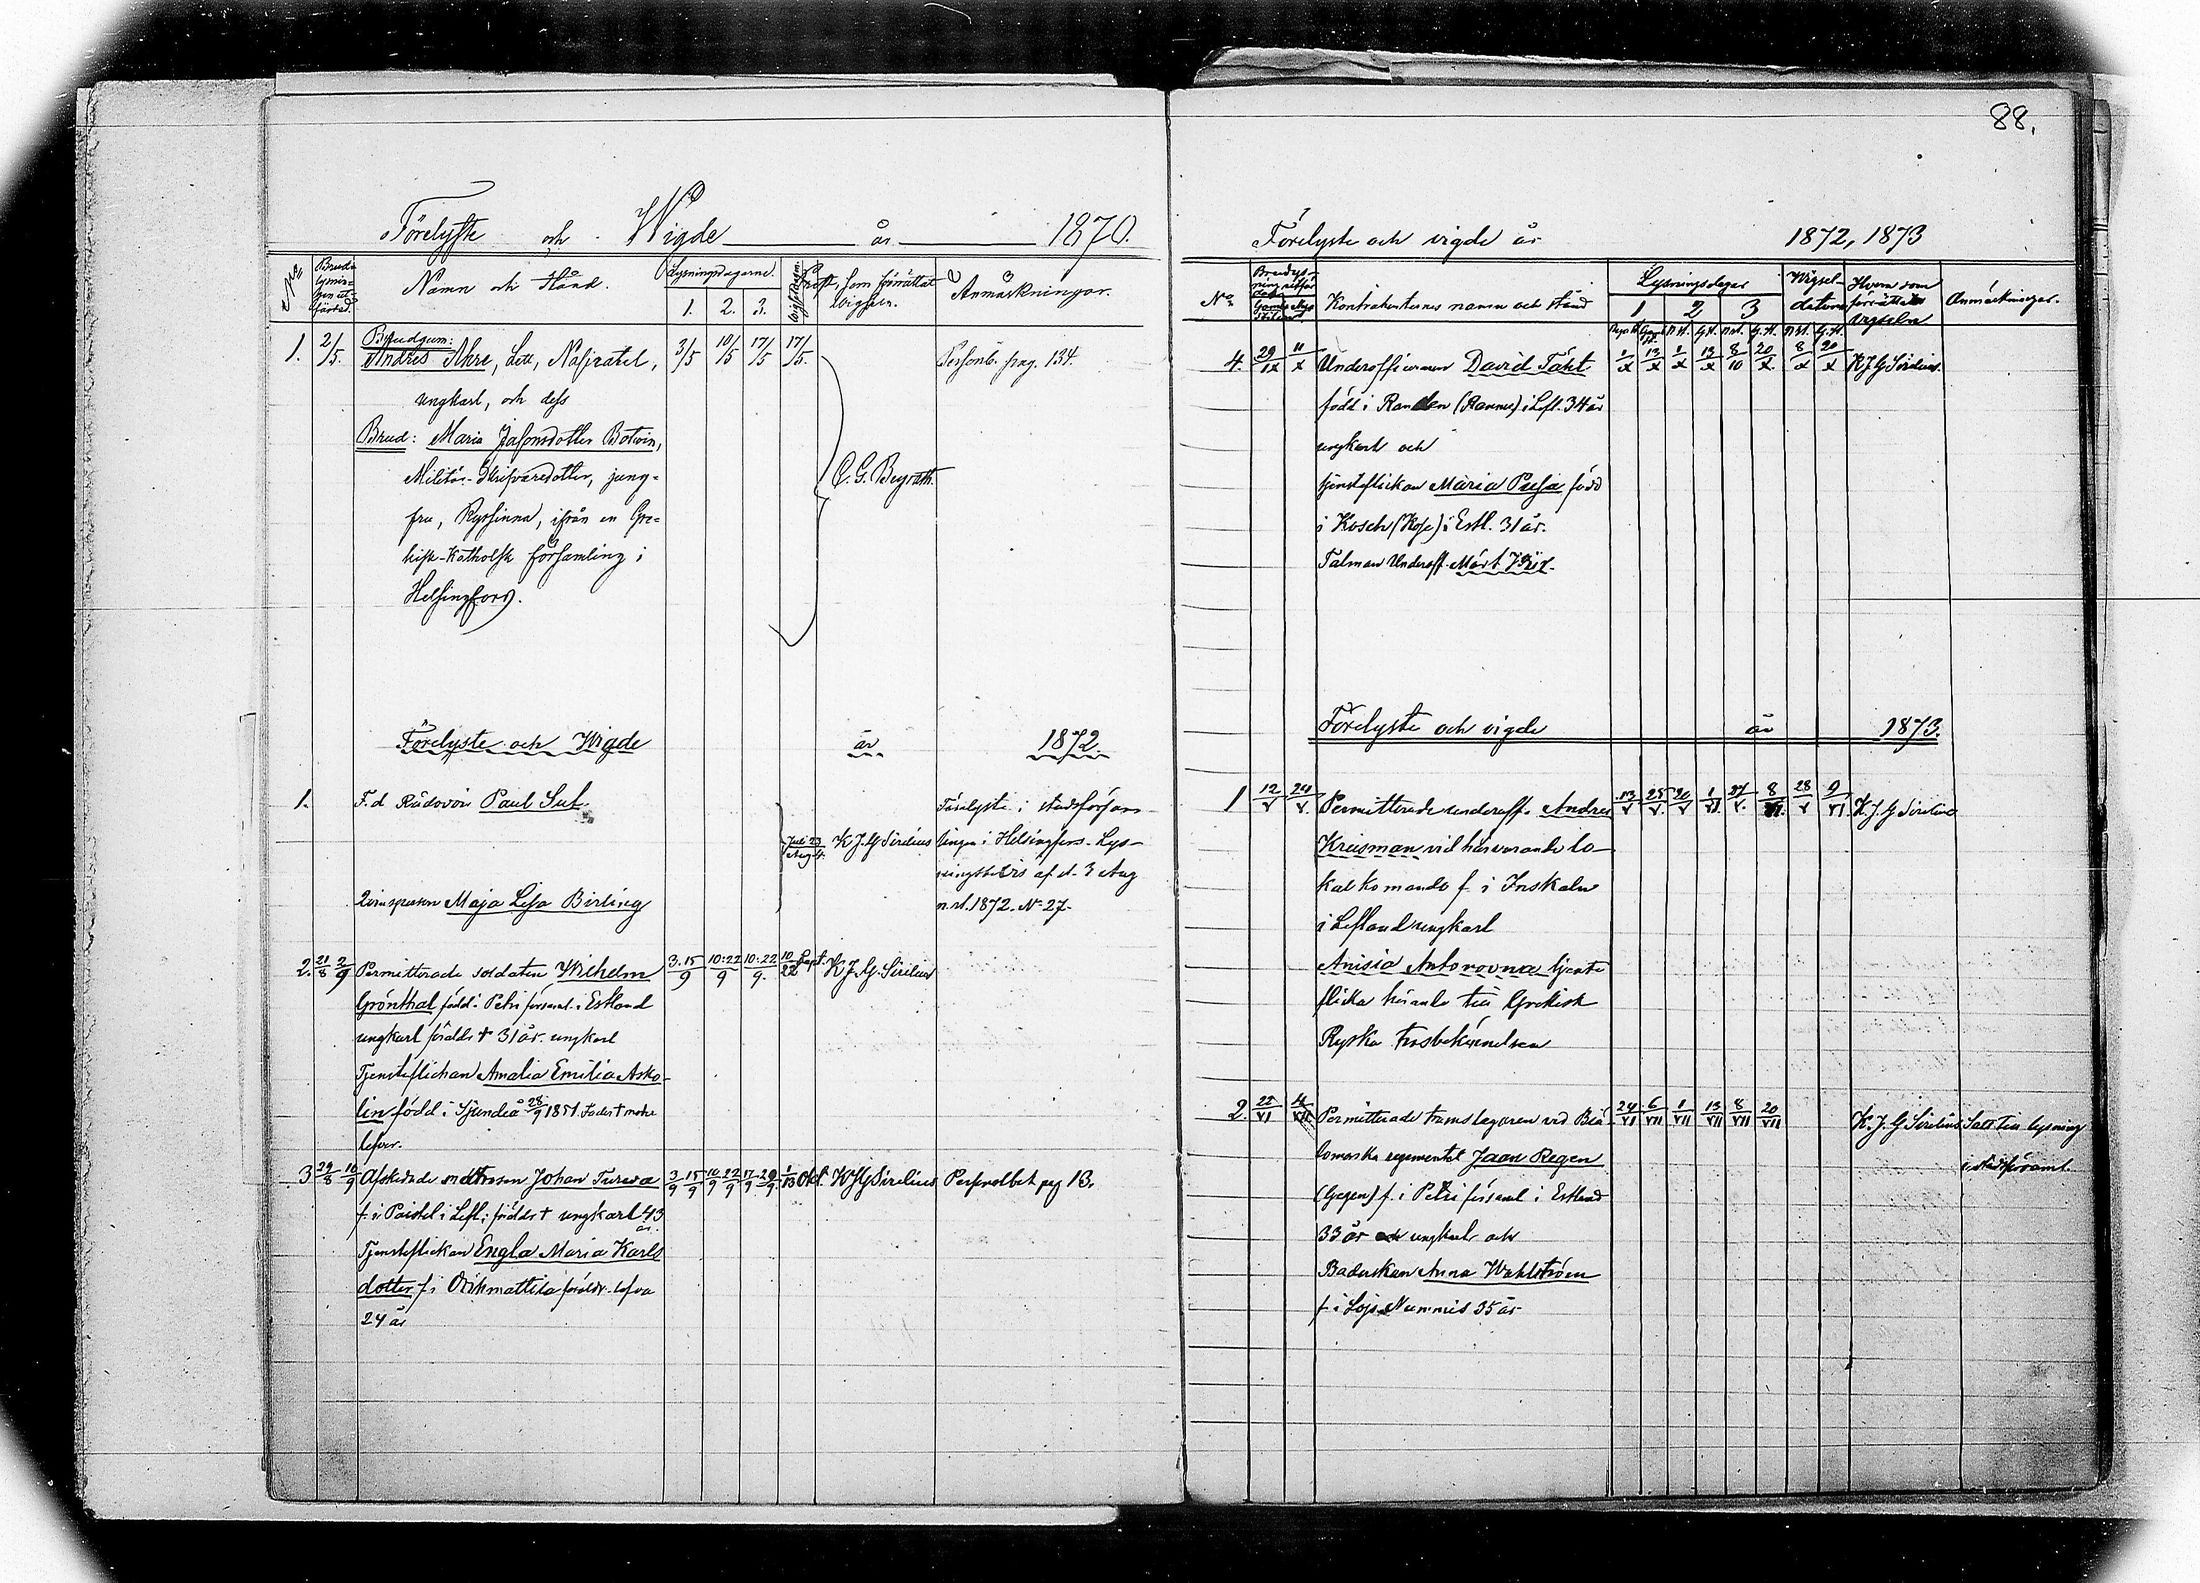 88.
Förelyste och Wigde år 1870.
No Brudlysningen utfärdad. Namn och stånd. Lysningsdagarne. 1. 2. 3. Vigselsdagen. Prest, som förrättat vigseln. Anmärkningar.
1. 2/5. Brudgum:
Andres Ahre, Lott, Nasjratel, 3/5 10/5 17/5 17/5. Personb. pag. 134.
ungkarl, och dess
Brud: Maria Jasonsdotter Botwin,
Militär-Skrifvaredotter, jung-
fru, Ryssinna, ifrån en Gre-
kisk-Katholsk församling i
Helsingfors.
C. G. Beyrath.
Förelyste och Wigde år 1872.
1. F.d Rådovoi Paul Sut.
Juli 23
Aug 4. K J. G Sirelius
Förelyste i stadsförsam-
lingen i Helsingfors. Lys-
ningsbevis af d. 3 Aug
n. st. 1872. No 27.
Qvinspersen Maja Lisa Birling
2. 21/8 2/9 Permitterade soldaten Wilhelm 3.15/9 10:22/9 10:22/9. 10/22 Sept. K J. G. Sirelius
Grönthal född i Petri församl. i Estland
ungkarl föräldr † 31 år. ungkarl
Tjensteflickan Amalia Emilia Asko-
lin född i Sjundeå 28/9 1851. Fader † moder
lefver.
3 29/8 10/9 Afskedade matrosen Johan Turewa 3/9 15/9 10/9 22/9 17/9 29/9. 1/13 Okt. K J G Sirelius Personalbok pag 13.
f. i Paistel i Lefl; föräldr † ungkarl 43
år.
Tjensteflickan Engla Maria Karls
dotter f. i Orihmattila föräldr. lefva
24 år
Förelyste och vigde år 1872, 1873
No Brudlysning utfärdad Gamla Nya stilen Kontrahenternes namn och stånd Lysningsdagar 1 2 3 Vigsel-datum Hvem som förrättade vigseln Anmärkningar.
4. 29/IX 11/X Underofficeraren David Täht 1/X 13/X 1/X 13/X 8/10 20/X. 8/X 20/X K J G Sirelius.
född i Randen (Rannu) i Lefl. 34 år
ungkarl och
tjensteflickan Maria Pusa född
i Kosch (Kose) i Estl. 31 år.
Talman Underoff. Märt Jüri.
Förelyste och vigde år 1873.
1 12/V 24/V. Permitterade underoff. Andres 13/V 25/V. 20/V 1/VI 27/V. 8/VI. 28/V 9/VI. K. J. G Sirelius
Kreisman vid härvarande lo-
kalkomando f. i Inskaln
i Lefland ungkarl
Anisia Antorovna tjenste
flicka hörande till Grekisk
Ryska trosbekännelsen
2. 22/VI 4/VII Permitterade trumslagaren vid Bia 24/VI 6/VII 1/VII 13/VII 8/VII 20/VII K. J. G Sirelius Satt till lysning
lomorska regementet Jaan Regen i stadsförsaml.
(Gegen) f. i Petri församl i Estland
33 år och ungkarl och
Baderskan Anna Wahlström
f. i Lojo Nummis 35 år